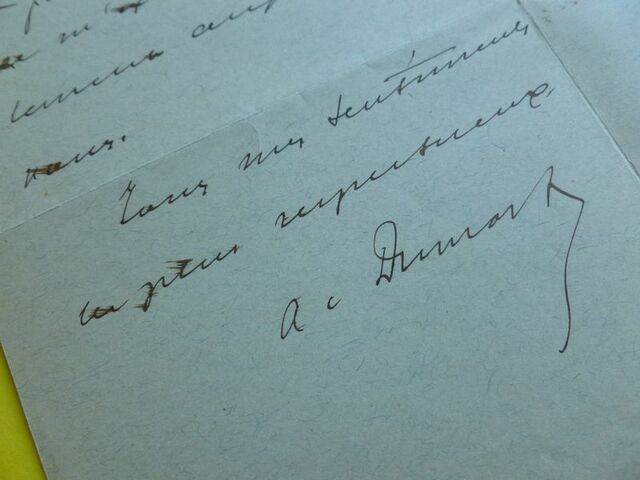 vous.
Tous mes sentiments
les plus respectueux.
A. Dumont